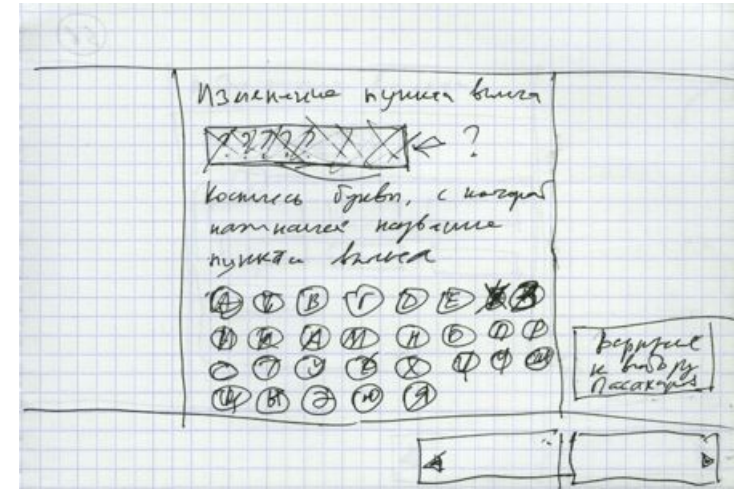 Изменение пункта вылета
? ? ? ? ?
?
Коснитесь буквы, с которой
начинается название
пункта вылета
А Б В Г Д Е
И К Л М Н О П Р
С Т У Ф Х Ц Ч Ш
Щ Ы Э Ю Я
Вернуться
к выбору